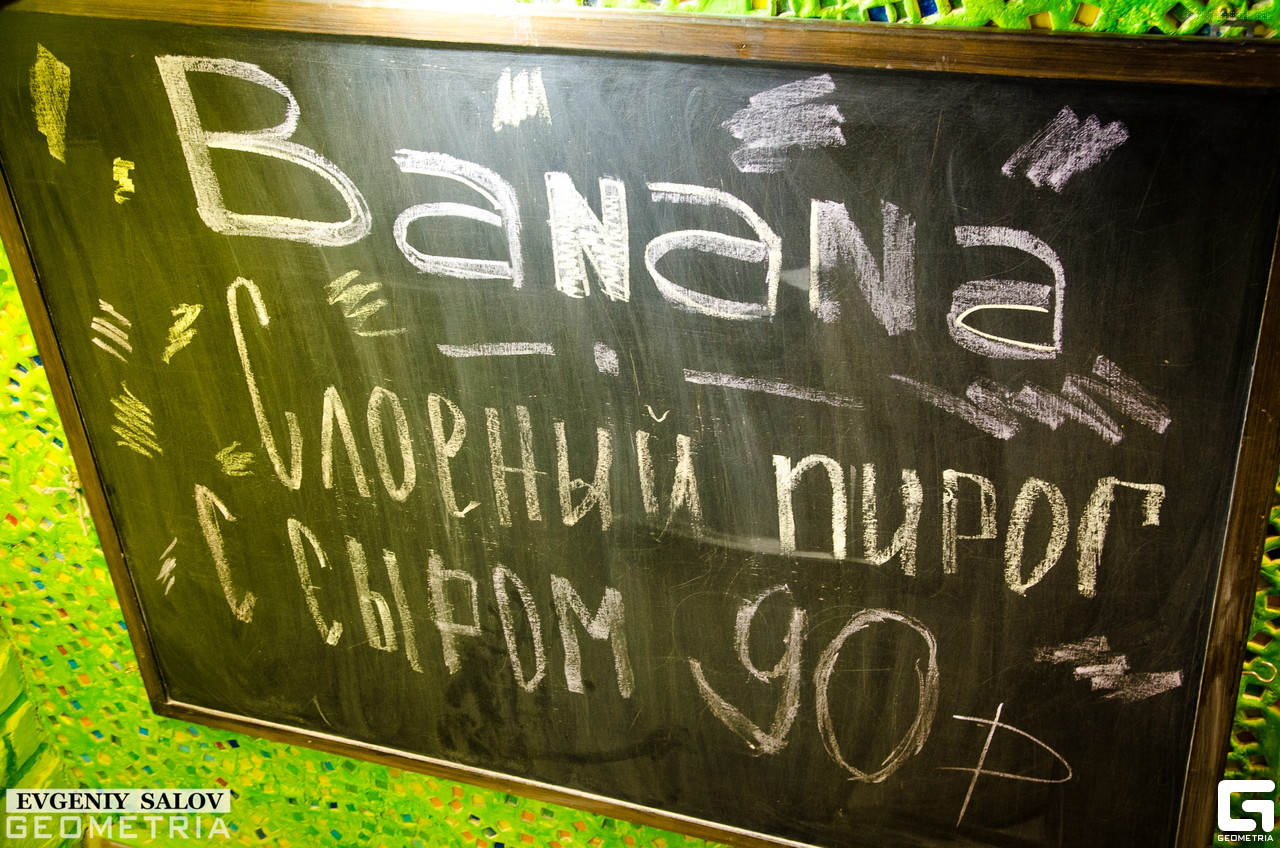 Banana
Слоеный пирог
с сыром 90 ₽
EVGENIY SALOV
GEOMETRIA
GEOMETRIA